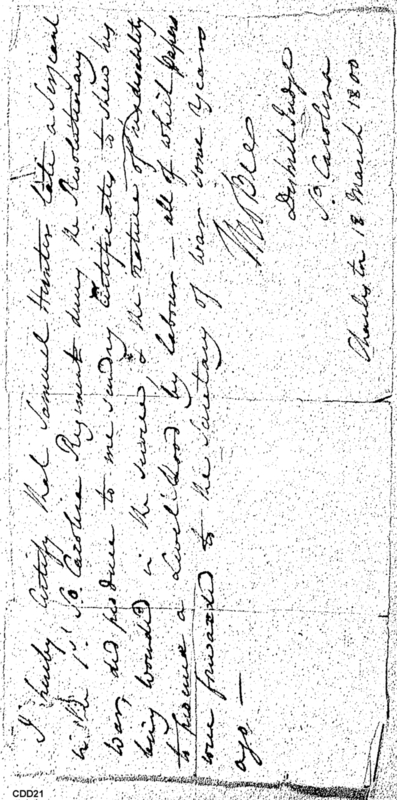 I hereby Certify that Samuel Hunter late a Serjeant
in the 1st So Carolina Regiment during the Revolutionary
War, did produce to me sundry Certificates to shew his
being wounded in the service & the nature of his disability
to procure a livelihood by labour – all of which papers
were forwarded to the Secretary of War some years
ago –
Tho Bee
District Judge
So Carolina
Charleston 18 March 1800
CDD21